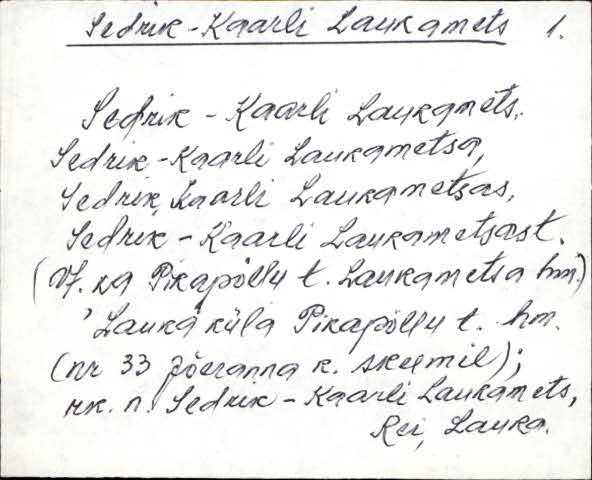 Sedrik-Kaarli Laukamets 1.
Sedrik - Kaarli Laukamets,
Sedrik-Kaarli Laukametsa,
Sedrik, Kaarli Laukametsas,
Sedrik - Kaarli Laukametsast.
(Vf. ka Pikapõllu t. Laukametsa hm.)
, Lauka küla Pikapõllu t. hm.
(nr 33 Jõeranna k. skeemil);
rk. n. Sedrik - Kaarli Laukamets,
Rei, Lauka.